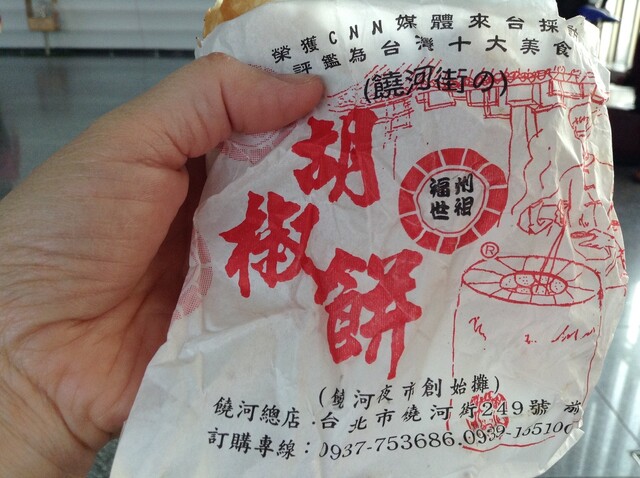 榮獲CNN媒體來台採訪
評鑑為台灣十大美食
(饒河街の)
胡椒餅
福州
世祖
®
(饒河夜市創始攤)
饒河總店:台北市饒河街249號前
訂購專線:0937-753686.0939-